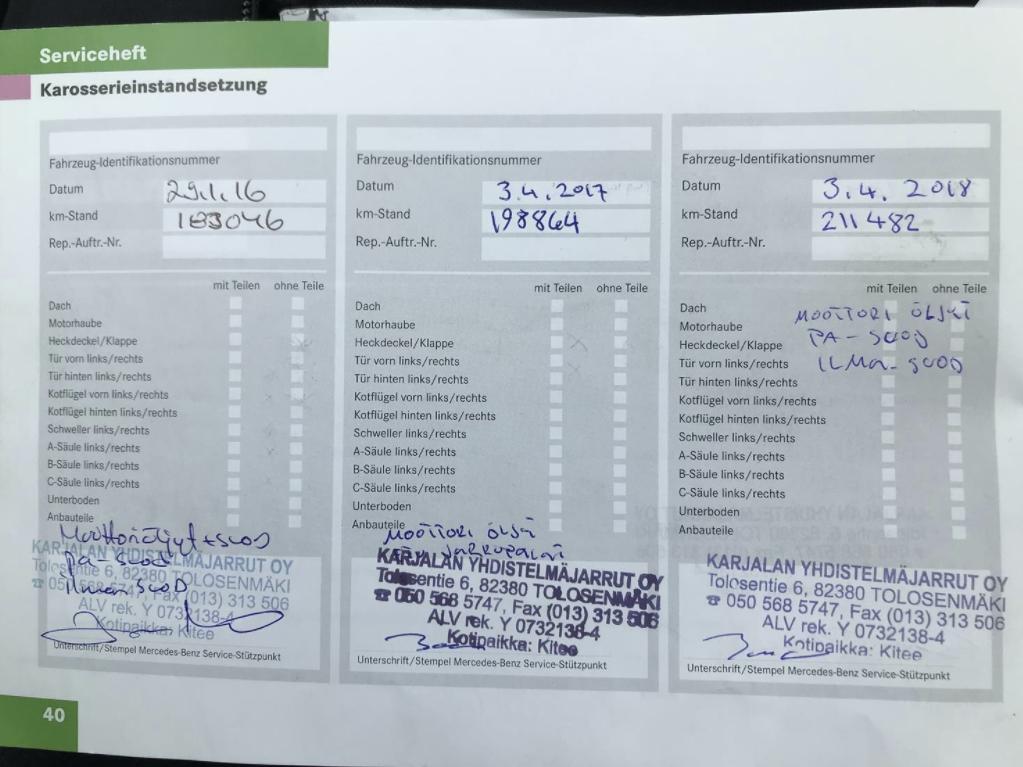 Serviceheft
Karosserieinstandsetzung
Fahrzeug-Identifikationsnummer
Datum 29.1.16
km-Stand 183046
Rep.-Auftr.-Nr.
mit Teilen ohne Teile
Dach
Motorhaube
Heckdeckel/Klappe
Tür vorn links/rechts
Tür hinten links/rechts
Kotflügel vorn links/rechts
Kotflügel hinten links/rechts
Schweller links/rechts
A-Säule links/rechts
B-Säule links/rechts
C-Säule links/rechts
Unterboden
Anbauteile
KARJALAN YHDISTELMÄJARRUT OY
Tolosentie 6, 82380 TOLOSENMÄKI
☎ 050 568 5747, Fax (013) 313 506
ALV rek. Y 0732138-4
Kotipaikka: Kitee
Unterschrift/Stempel Mercedes-Benz Service-Stützpunkt
Fahrzeug-Identifikationsnummer
Datum 3.4.2017
km-Stand 198864
Rep.-Auftr.-Nr.
mit Teilen ohne Teile
Dach
Motorhaube
Heckdeckel/Klappe
Tür vorn links/rechts
Tür hinten links/rechts
Kotflügel vorn links/rechts
Kotflügel hinten links/rechts
Schweller links/rechts
A-Säule links/rechts
B-Säule links/rechts
C-Säule links/rechts
Unterboden
Anbauteile
MOOTTORI ÖLJYT
JARRUPALAT
KARJALAN YHDISTELMÄJARRUT OY
Tolosentie 6, 82380 TOLOSENMÄKI
☎ 050 568 5747, Fax (013) 313 506
ALV rek. Y 0732138-4
Kotipaikka: Kitee
Unterschrift/Stempel Mercedes-Benz Service-Stützpunkt
Fahrzeug-Identifikationsnummer
Datum 3.4.2018
km-Stand 211482
Rep.-Auftr.-Nr.
mit Teilen ohne Teile
Dach
MOOTTORI ÖLJYT
Motorhaube
PA-SUOD
Heckdeckel/Klappe
ILMA-SUOD
Tür vorn links/rechts
Tür hinten links/rechts
Kotflügel vorn links/rechts
Kotflügel hinten links/rechts
Schweller links/rechts
A-Säule links/rechts
B-Säule links/rechts
C-Säule links/rechts
Unterboden
Anbauteile
KARJALAN YHDISTELMÄJARRUT OY
Tolosentie 6, 82380 TOLOSENMÄKI
☎ 050 568 5747, Fax (013) 313 506
ALV rek. Y 0732138-4
Kotipaikka: Kitee
Unterschrift/Stempel Mercedes-Benz Service-Stützpunkt
40